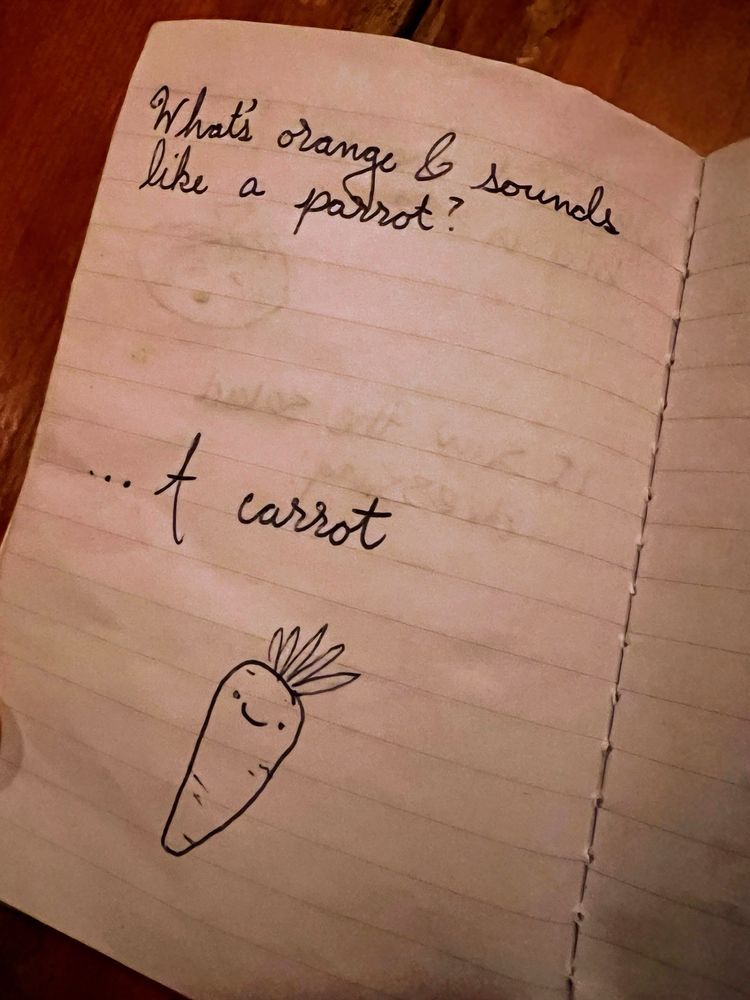 What's orange & sounds
like a parrot?
... A carrot